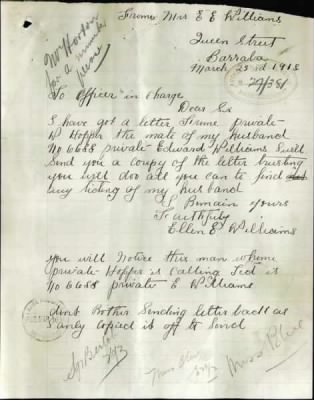 Frome Mrs E E Williams
Queen Street
Barraba
March 23rd 1918
To Officer in Charge
Dear Sir
I have got a letter Frome private
W Hopper the mate of my husband
No 6688 private Edward Williams I will
Send you a coupy of the letter trusting
you will doo all you can to find
any tiding of my husband
I Remain yours
Faithfuly
Ellen E Williams
you will Notice this man whome
private Hopper is Calling Ted is
No 6688 private E Williams
dont Bother Sending letter back as
I only Copied it off to Send